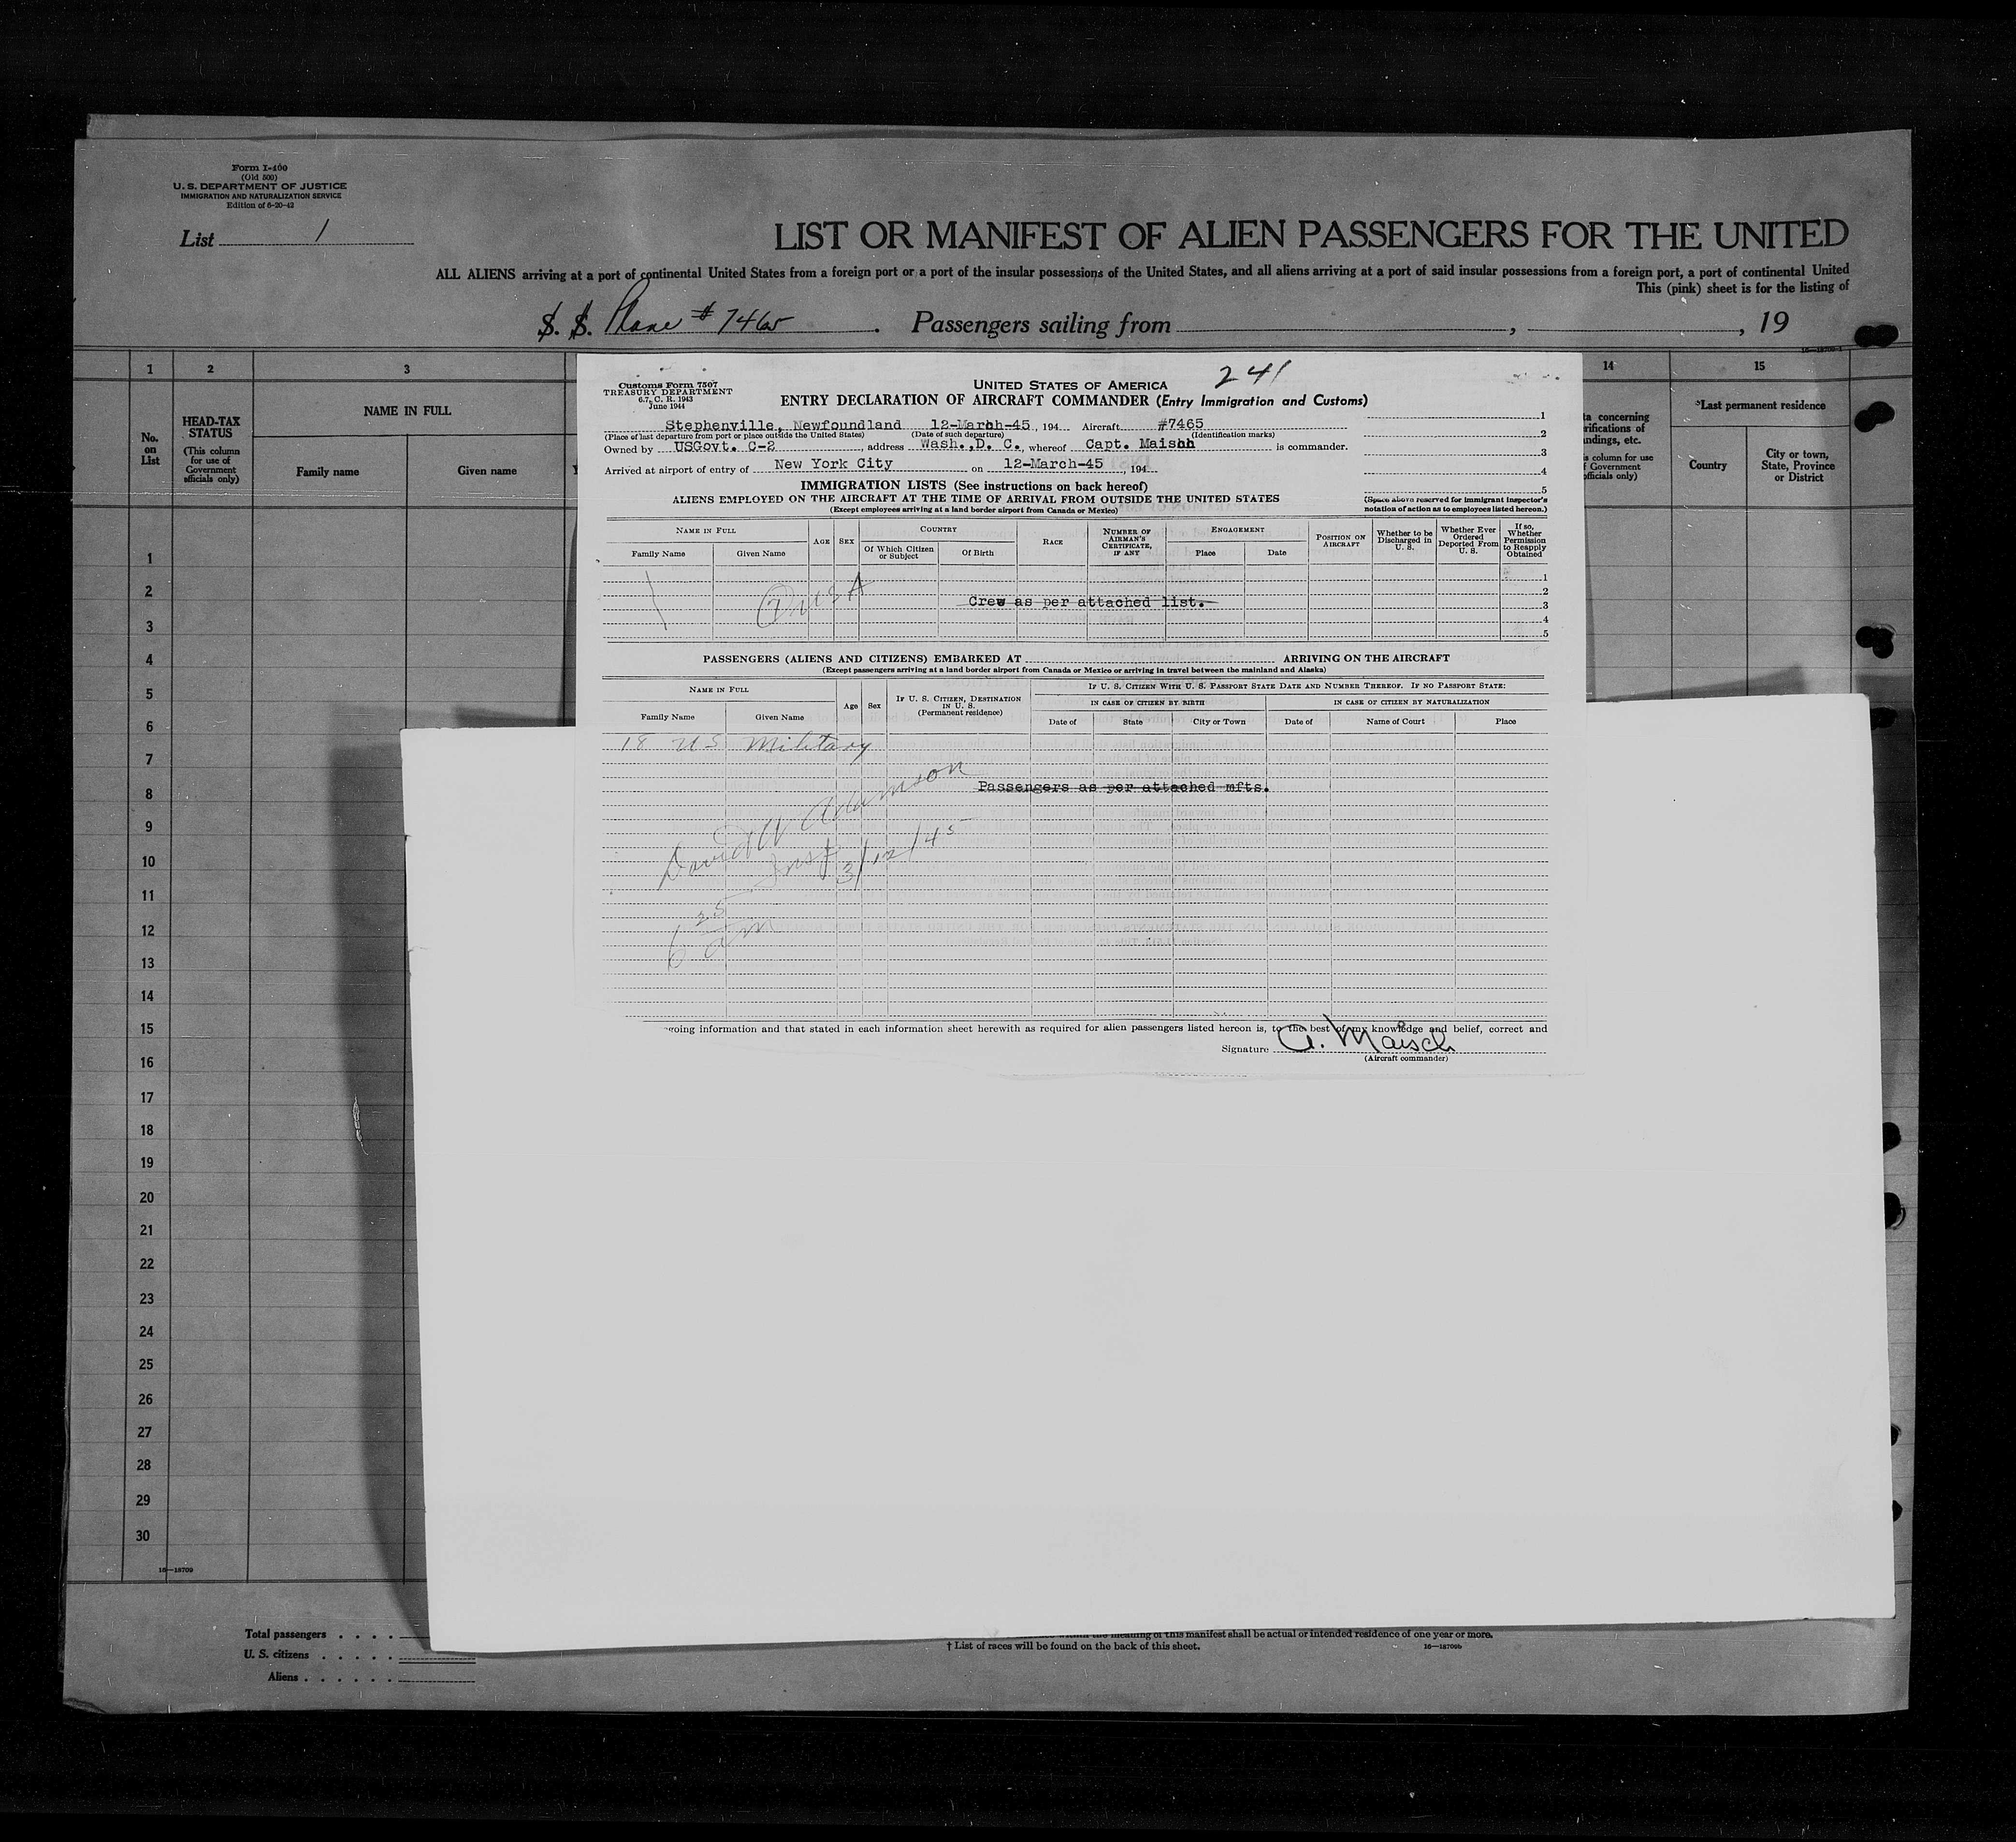 Form I-400
(Old 500)
U. S. DEPARTMENT OF JUSTICE
IMMIGRATION AND NATURALIZATION SERVICE
Edition of 6-20-42
List 1
LIST OR MANIFEST OF ALIEN PASSENGERS FOR THE UNITED
ALL ALIENS arriving at a port of continental United States from a foreign port or a port of the insular possessions of the United States, and all aliens arriving at a port of said insular possessions from a foreign port, a port of continental United
This (pink) sheet is for the listing of
S. S. Plane # 7465 . Passengers sailing from , , 19
1 2 3 14 15
No. on List
HEAD-TAX STATUS
(This column for use of Government officials only)
NAME IN FULL
Family name Given name
concerning
rifications of
ndings, etc.
column for use
Government
officials only)
*Last permanent residence
Country
City or town, State, Province or District
Customs Form 7507
TREASURY DEPARTMENT
6.7, C. R. 1943
June 1944
UNITED STATES OF AMERICA
241
ENTRY DECLARATION OF AIRCRAFT COMMANDER (Entry Immigration and Customs)
Stephenville, Newfoundland 12-March-45, 194 Aircraft #7465
(Place of last departure from port or place outside the United States) (Date of such departure) (Identification marks)
Owned by USGovt. C-2, address Wash.,D. C., whereof Capt. Maishh is commander.
Arrived at airport of entry of New York City on 12-March-45, 194
1
2
3
4
5
IMMIGRATION LISTS (See instructions on back hereof)
ALIENS EMPLOYED ON THE AIRCRAFT AT THE TIME OF ARRIVAL FROM OUTSIDE THE UNITED STATES
(Except employees arriving at a land border airport from Canada or Mexico)
(Space above reserved for immigrant inspector's
notation of action as to employees listed hereon.)
NAME IN FULL
Family Name Given Name
AGE SEX
COUNTRY
Of Which Citizen or Subject
Of Birth
RACE
NUMBER OF AIRMAN'S CERTIFICATE, IF ANY
ENGAGEMENT
Place Date
POSITION ON AIRCRAFT
Whether to be Discharged in U. S.
Whether Ever Ordered Deported From U. S.
If so, Whether Permission to Reapply Obtained
USA
Crew as per attached list.
1
2
3
4
5
PASSENGERS (ALIENS AND CITIZENS) EMBARKED AT ARRIVING ON THE AIRCRAFT
(Except passengers arriving at a land border airport from Canada or Mexico or arriving in travel between the mainland and Alaska)
NAME IN FULL
Family Name Given Name
Age Sex
IF U. S. CITIZEN, DESTINATION IN U. S. (Permanent residence)
IF U. S. CITIZEN WITH U. S. PASSPORT STATE DATE AND NUMBER THEREOF. IF NO PASSPORT STATE:
IN CASE OF CITIZEN BY BIRTH IN CASE OF CITIZEN BY NATURALIZATION
Date of State City or Town Date of Name of Court Place
18 US Military
Passengers as per attached mfts.
David W Adamson
Insp 3/12/45
6 25 am
going information and that stated in each information sheet herewith as required for alien passengers listed hereon is, to the best of my knowledge and belief, correct and
Signature A. Maisch
(Aircraft commander)
1
2
3
4
5
6
7
8
9
10
11
12
13
14
15
16
17
18
19
20
21
22
23
24
25
26
27
28
29
30
16—18709
Total passengers . . . .
U. S. citizens . . . . .
Aliens . . . . . .
meaning of this manifest shall be actual or intended residence of one year or more.
† List of races will be found on the back of this sheet.
16—18709b